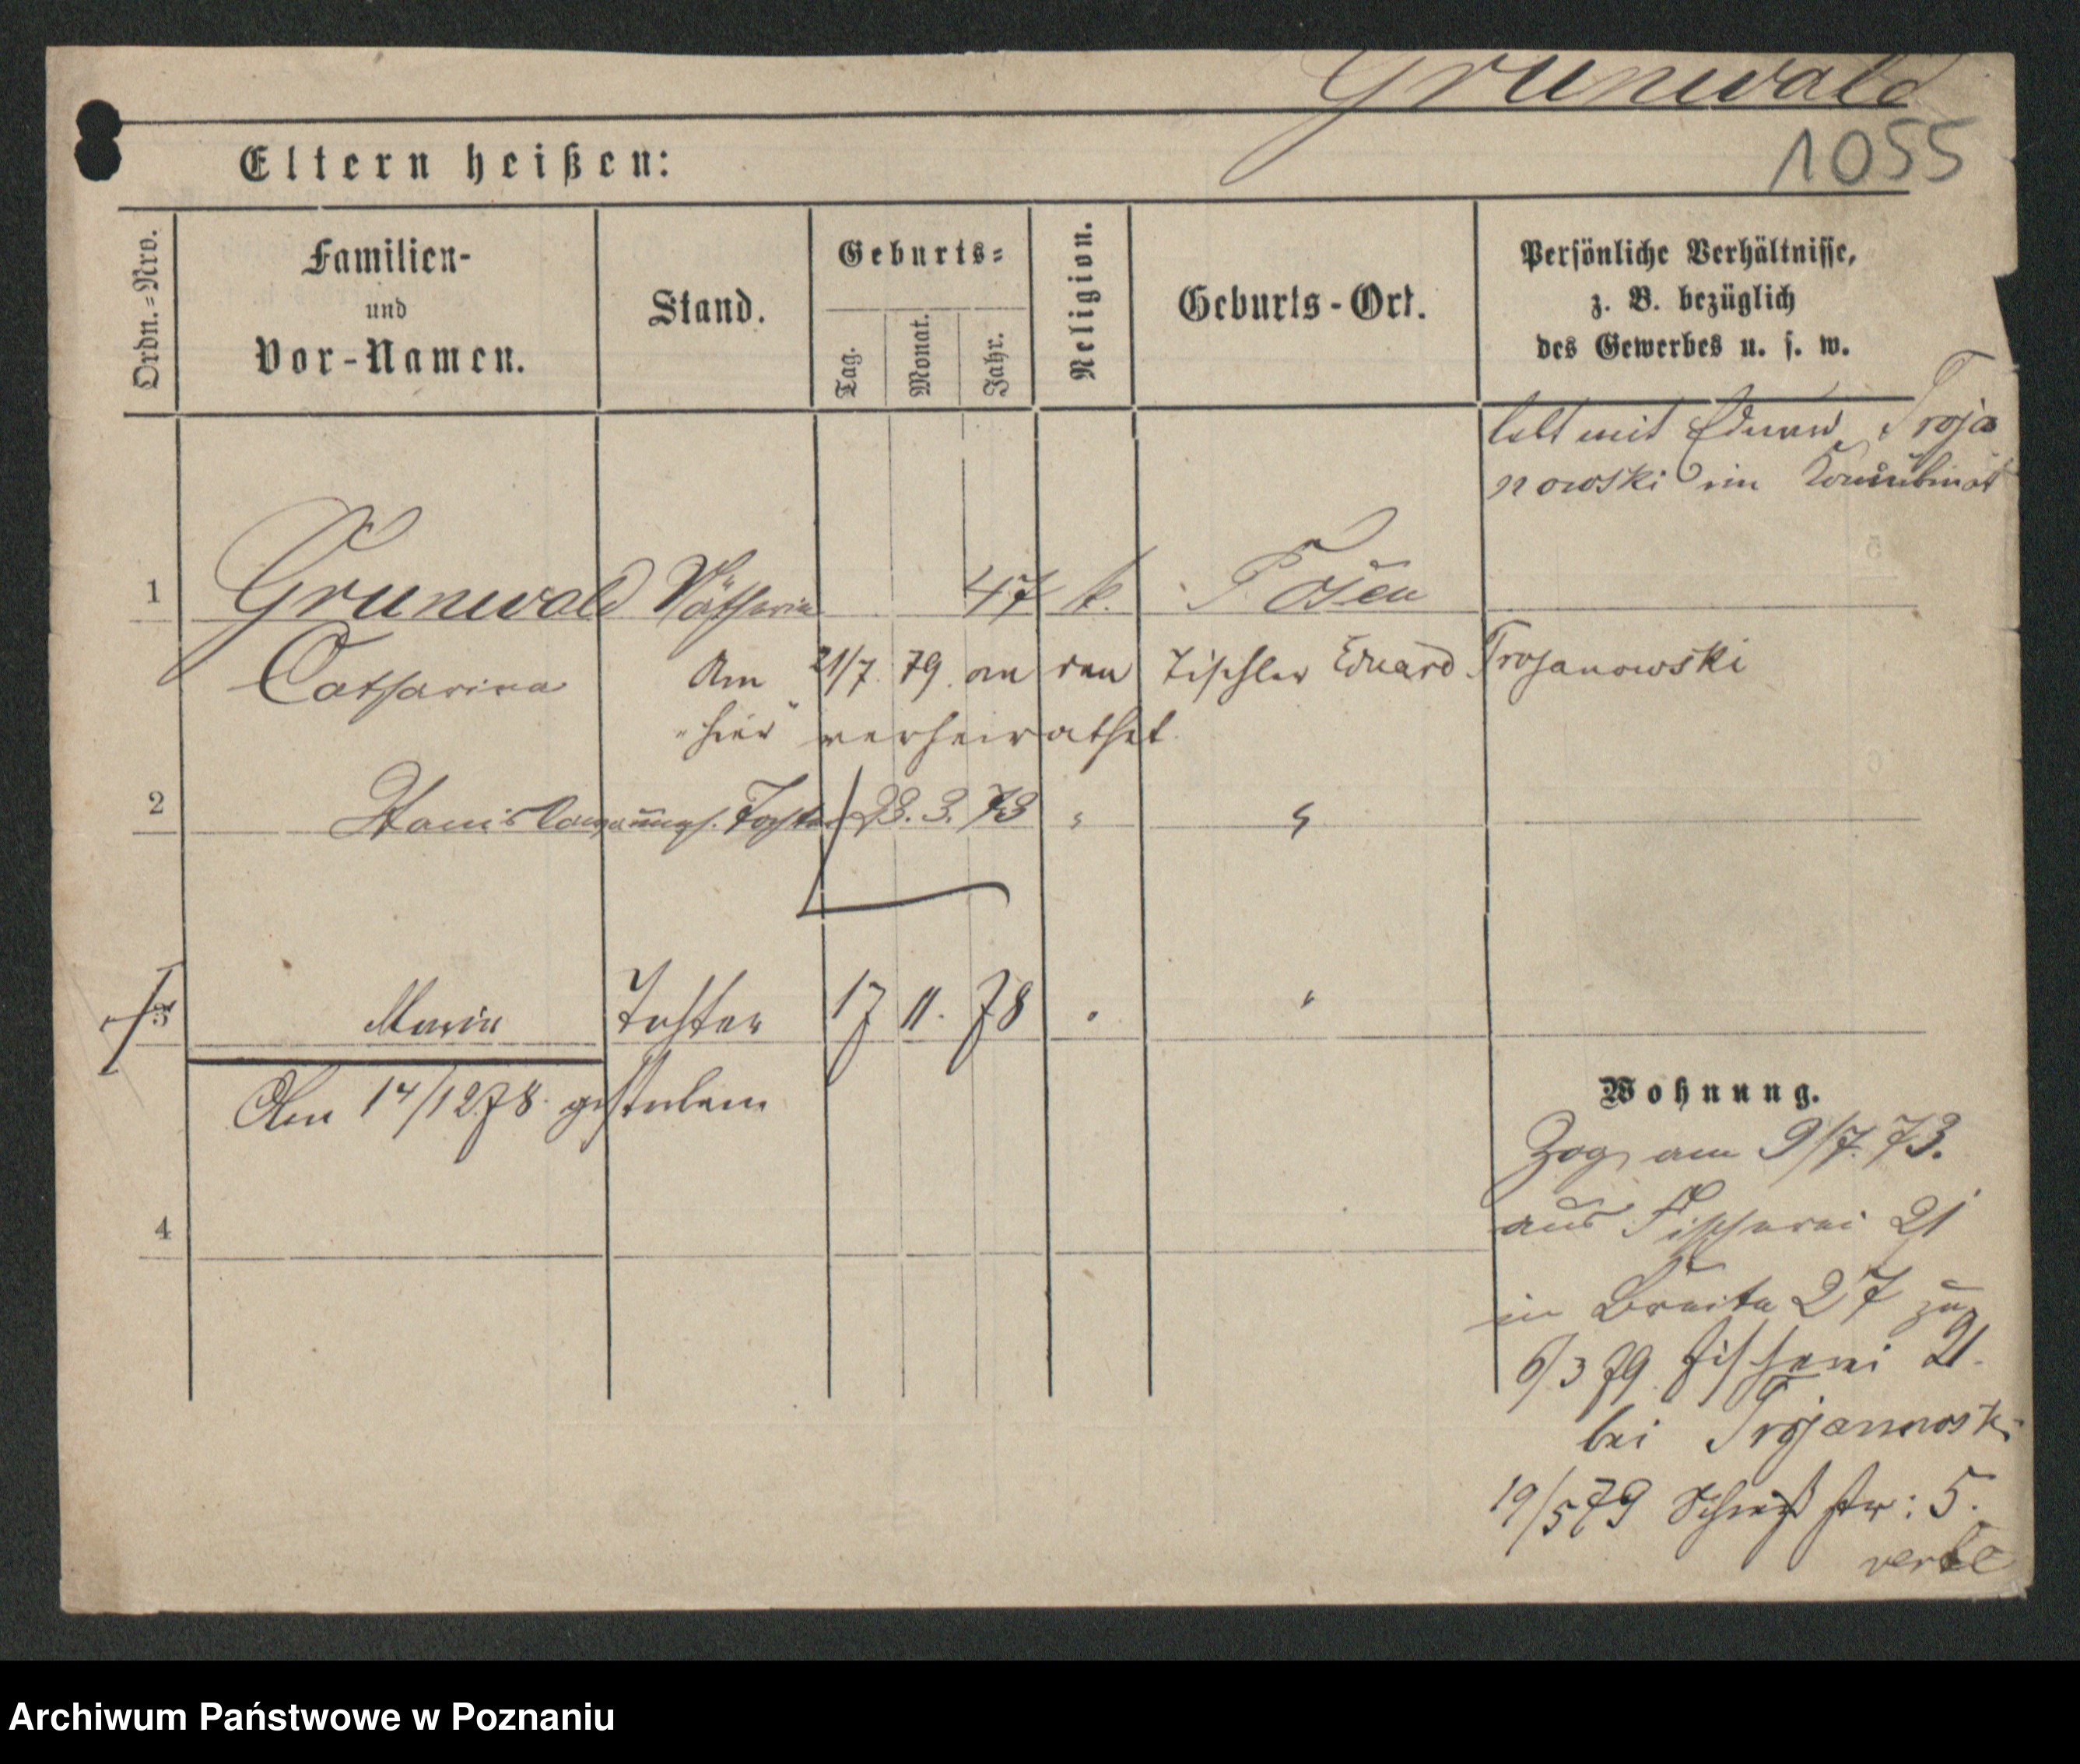 Grunwald
1055
Eltern heißen:
Ordn.=Nro.
Familien-
und
Vor-Namen.
Stand.
Geburts=
Tag.
Monat.
Jahr.
Religion.
Geburts-Ort.
Persönliche Verhältnisse,
z. B. bezüglich
des Gewerbes u. s. w.
lebt mit Eduard Troja
nowski im
1 Grunwald 47 k. Posen
Catharina Am 21/7. 79. an den Tischler Eduard Trojanowski
"hier" verheirathet.
2 Stanislawa Tochter 23. 3. 73 " "
3 Maria Tochter 17 11. 78 " "
Am 14/12 78. gestorben
4
Wohnung.
Zog am 9/7. 73.
aus Fischerei 21
in Breite 27 zu
6/3 79. Fischerei 21.
bei Trojanowski
19/5 79 Schieß str: 5.
Archiwum Państwowe w Poznaniu